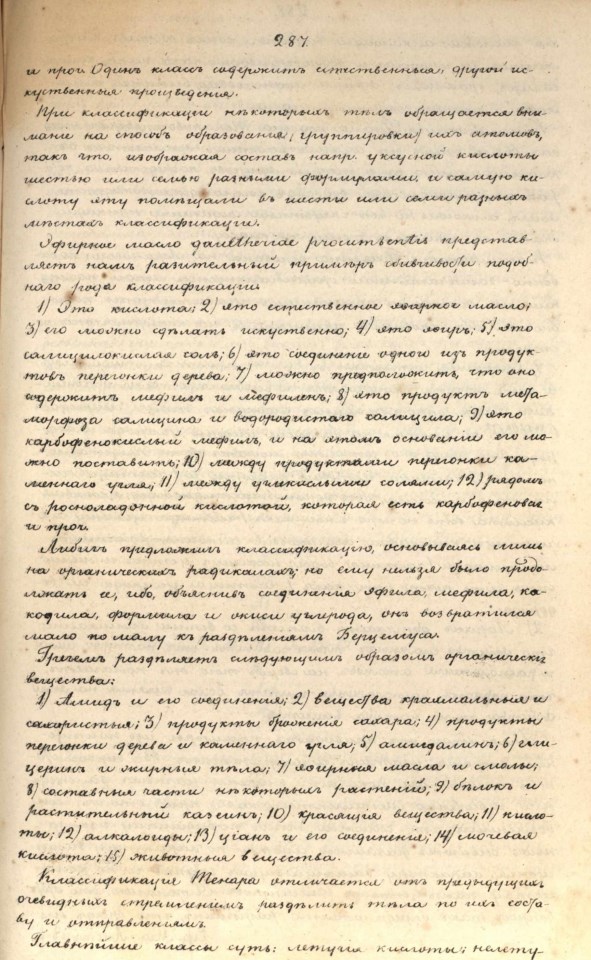 287.
и проч. Одинъ классъ содержитъ естественныя, другой ис-
куственныя произведенія.
При классификаціи нѣкоторыхъ тѣлъ обращается вни-
маніе на способъ образованія, группировки ихъ атомовъ,
такъ что, изображая составъ напр. уксусной кислоты
шестью или семью разными формулами, и самую ки-
слоту эту помѣщали въ шести или семи разныхъ
мѣстахъ классификаціи.
Эфирное масло gaultheriae procumbentis представ-
ляетъ намъ разительный примѣръ сбивчивости подоб-
наго рода классификаціи.
1) Это кислота; 2) это естественное эѳирное масло;
3) его можно сдѣлать искуственно; 4) это эѳиръ; 5) это
салицилокислая соль; 6) это соединеніе одного изъ продук-
товъ перегонки дерева; 7) можно предположить, что оно
содержитъ мефилъ и мефиленъ; 8) это продуктъ мета-
морфоза салицина и водородистаго салицила; 9) это
карбофенокислый мефилъ, и на этомъ основаніи его мо-
жно поставить; 10) между продуктами перегонки ка-
меннаго угля; 11) между углекислыми солями; 12) рядомъ
съ росноладонной кислотой, которая есть карбофеновая
и проч.
Либихъ предложилъ классификацію, основываясь лишь
на органическихъ радикалахъ; но ему нельзя было продо-
лжать ее, ибо, объяснивъ соединенія эфила, мефила, ка-
кодила, формила и окиси углерода, онъ возвратился
мало по малу къ раздѣленіямъ Берцеліуса.
раздѣляетъ слѣдующимъ образомъ органическія
вещества:
1) Амидъ и его соединенія; 2) вещества крахмальныя и
сахаристыя; 3) продукты броженія сахара; 4) продукты
перегонки дерева и каменнаго угля; 5) амигдалинъ; 6) гли-
церинъ и жирныя тѣла; 7) эѳирныя масла и смолы;
8) составныя части нѣкоторыхъ растеній; 9) бѣлокъ и
растительный казеинъ; 10) красящія вещества; 11) кисло-
ты; 12) алкалоиды; 13) ціанъ и его соединенія; 14) мочевая
кислота; 15) животныя вещества.
Классификація Тенара отличается отъ предыдущихъ
очевиднымъ стремленіемъ раздѣлить тѣла по ихъ соста-
ву и отправленіямъ.
Главнѣйшіе классы суть: летучія кислоты; нелету-